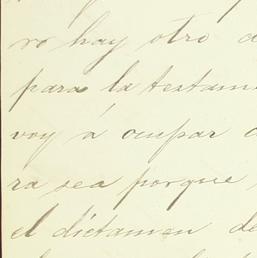 ro hay otro
para la testam
voy á ocupar
ra sea porque
el dictamen de